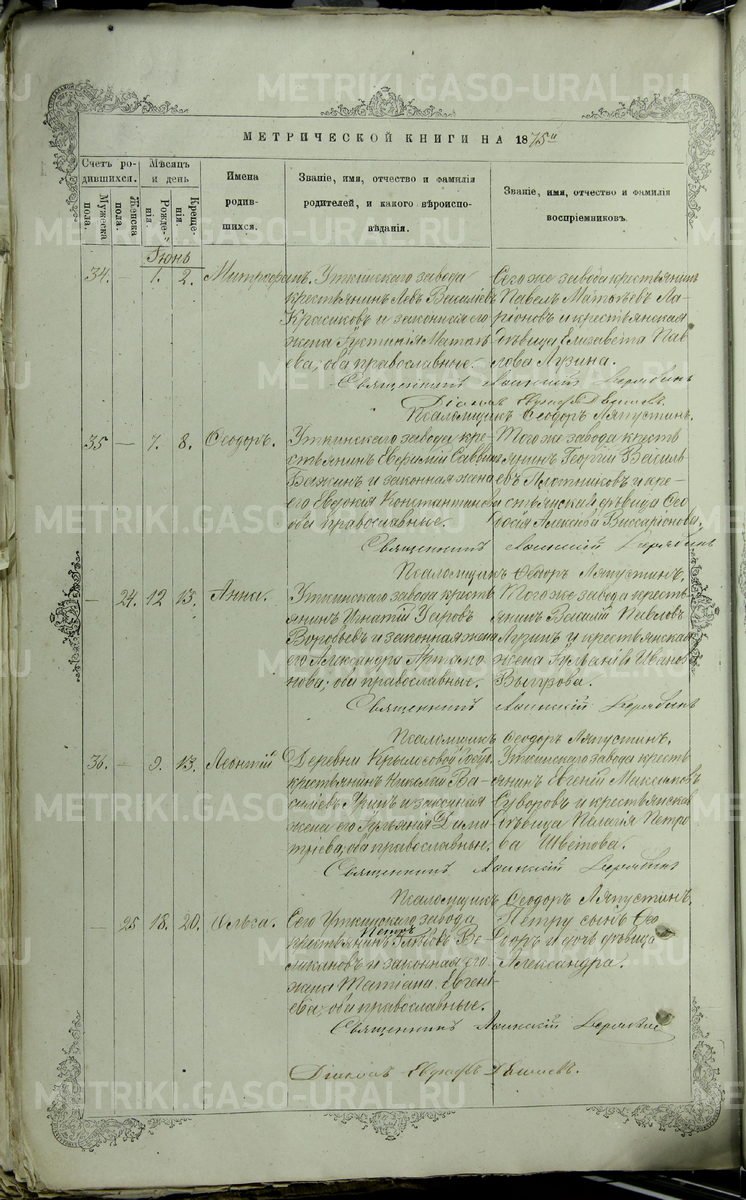 МЕТРИЧЕСКОЙ КНИГИ НА 1875 й
Счетъ ро-
дившихся.
Мужеска пола.
Женска пола.
Мѣсяцъ и день
Рожде-
нія.
Креще-
нія.
Имена
родив-
шихся.
Званіе, имя, отчество и фамилія
родителей, и какого вѣроиспо-
вѣданія.
Званіе, имя, отчество и фамилія
воспріемниковъ.
Іюнь
34. — 1. 2. Митрофанъ.
Уткинскаго завода
крестьянинъ Левъ Василіевъ
Красиковъ и законная его
жена Іустинія Матвѣ-
ева; оба православные.
Сего же завода крестьянинъ
Павелъ Матвѣевъ Ла-
ріоновъ и крестьянская
дѣвица Елизавета Пав-
лова Лузина.
Священникъ
Діаконъ
Псаломщикъ Ѳеодоръ Ляпустинъ.
35 — 7. 8. Ѳеодоръ.
Уткинскаго завода кре-
стьянинъ Евфимій Саввинъ
и законная жена
его Евдокія Константинова
оба православные.
Того же завода кресть
янинъ Георгій Василь-
евъ Плотниковъ и кре-
стьянская дѣвица Ѳео
досія Виссаріонова.
Священникъ
Псаломщикъ Ѳеодоръ Ляпустинъ.
— 24. 12 13. Анна.
Уткинскаго завода кресть
янинъ Игнатій
Воробьевъ и законная жена
его Александра Артамо
нова; оба православные.
Того же завода кресть-
янинъ Василій Павловъ
Лузинъ и крестьянская
жена Іуліанія Иванова
Священникъ
Псаломщикъ Ѳеодоръ Ляпустинъ.
36. — 9. 13. Леонтій
Деревни Крылосовой
крестьянинъ Николай Ва-
силіевъ и законная
жена его Іуліанія Дими
тріева; оба православные.
Уткинскаго завода кресть
янинъ Евгеній Максимовъ
Суворовъ и крестьянская
дѣвица Пелагія Петро
ва Шветова.
Священникъ
Псаломщикъ Ѳеодоръ Ляпустинъ.
— 25 18. 20. Ольга.
Сего Уткинскаго завода
Петръ
крестьянинъ Глѣбовъ Ве-
ликановъ и законная его
жена Татіана Евгені-
ева; оба православные.
Петру сынъ Ѳео
доръ и дочь дѣвица
Александра.
Священникъ
Діаконъ
METRIKI.GASO-URAL.RU